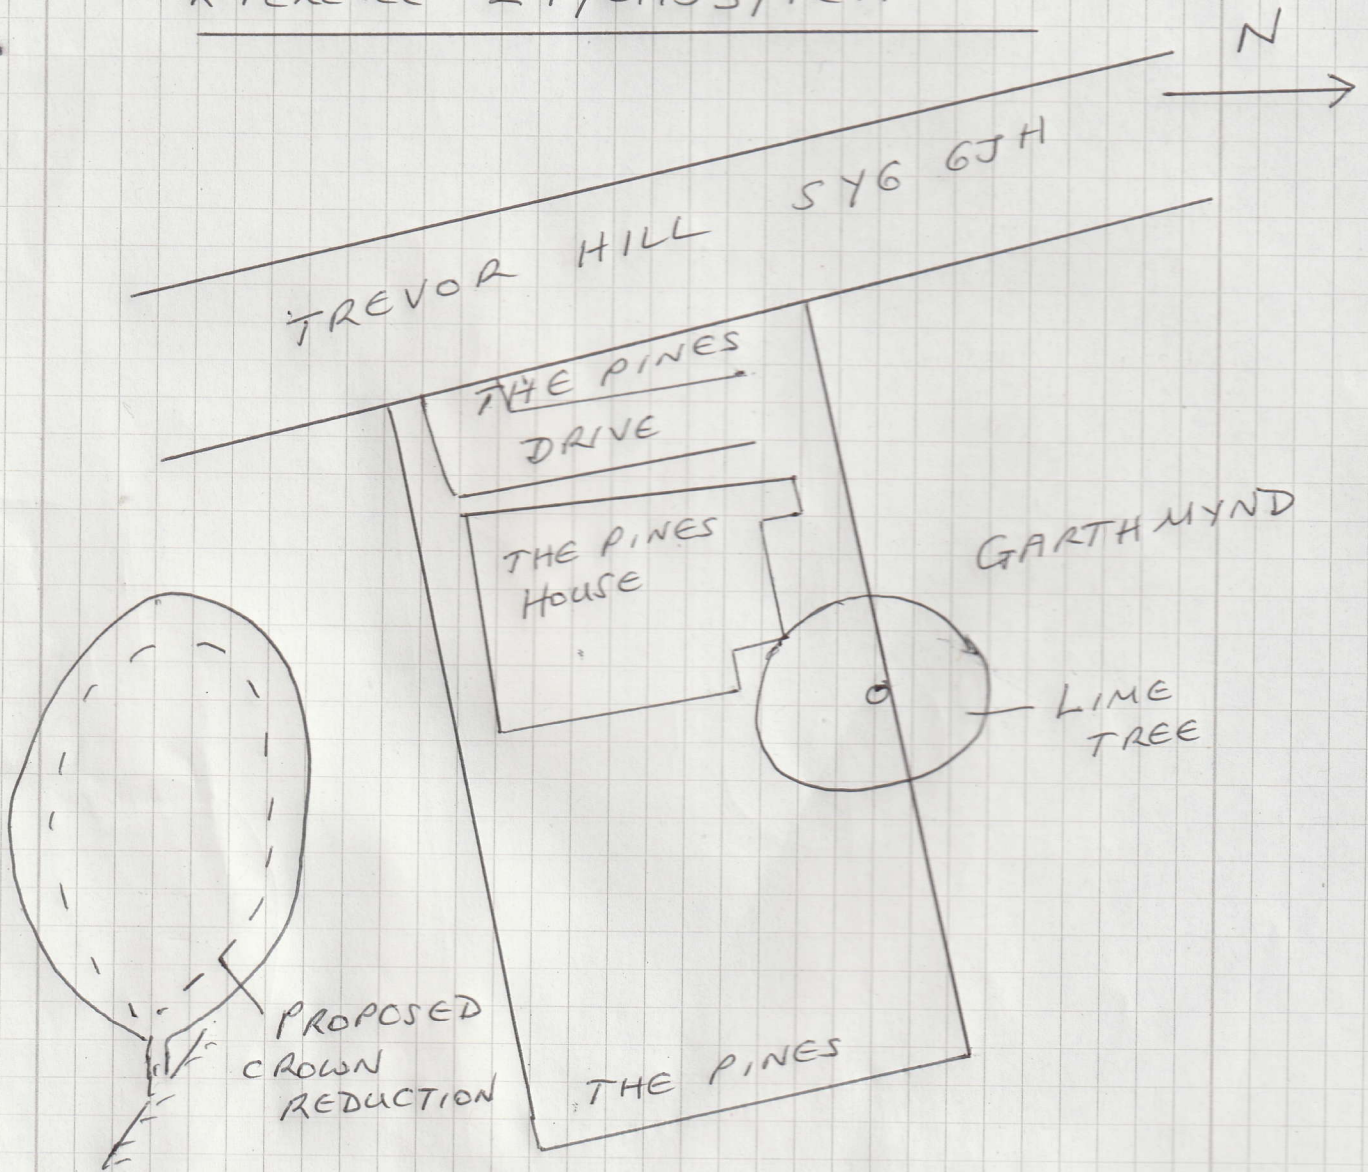 N
TREVOR HILL SY6 6JH
THE PINES
DRIVE
THE PINES
HOUSE
GARTHMYND
LIME
TREE
PROPOSED
CROWN
REDUCTION
THE PINES